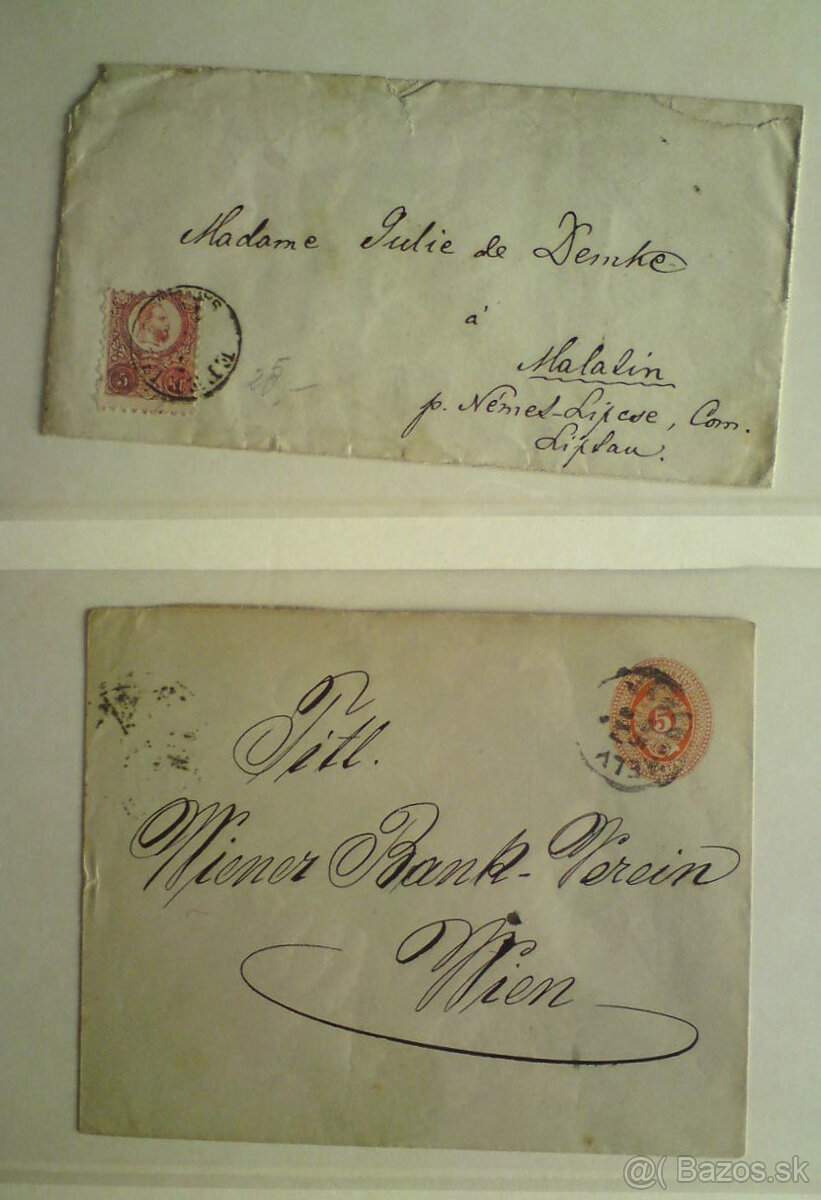 Madame Julie de Demke
á
Malatin
p. Német-Lipcse, Com.
Liptau.
5
Titl.
5
Wiener Bank-Verein
Wien
@( Bazos.sk